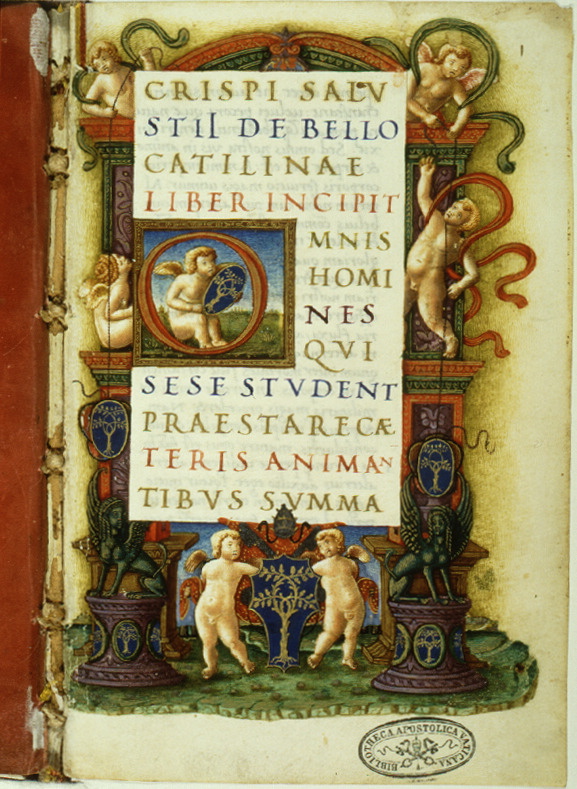 1
CRISPI SALV
STII DE BELLO
CATILINAE
LIBER INCIPIT
OMNIS
HOMI
NES
QVI
SESE STVDENT
PRAESTARE CÆ
TERIS ANIMAN
TIBVS SVMMA
BIBLIOTHECA APOSTOLICA VATICANA